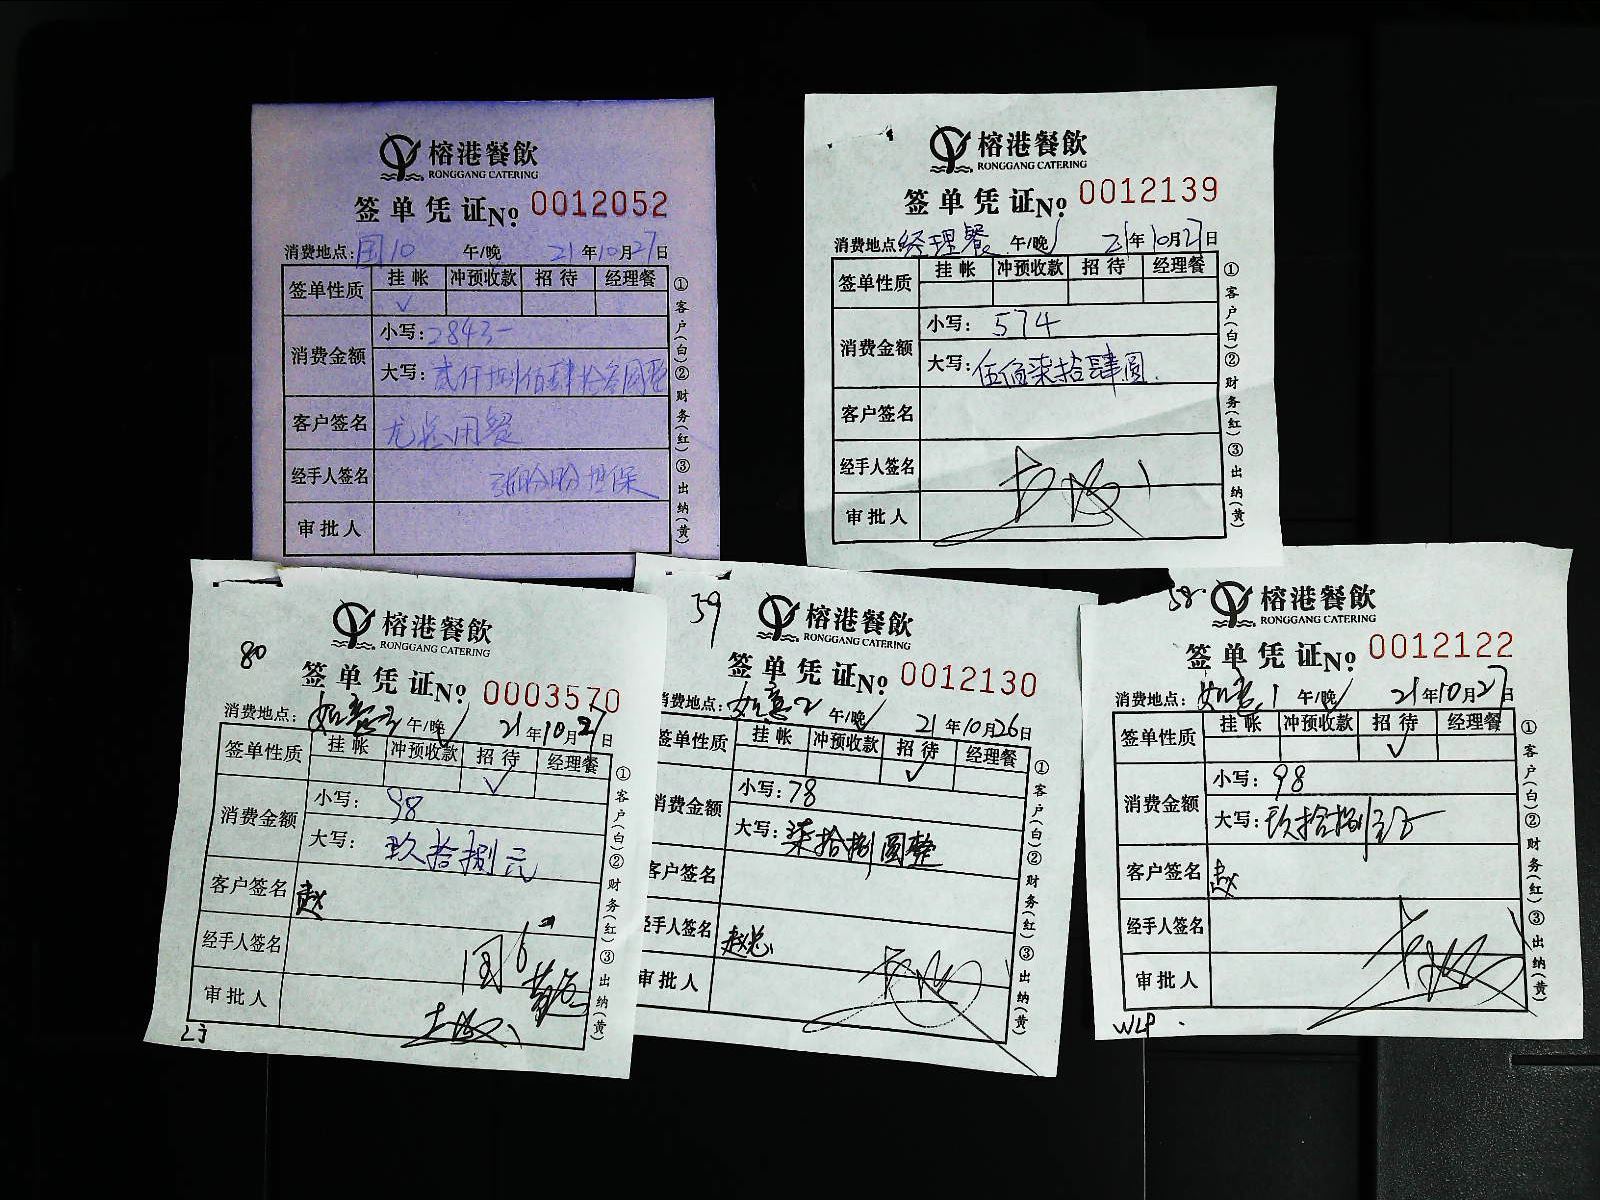 榕港餐飲
RONGGANG CATERING
签单凭证No. 0012052
消费地点:国10 午/晚 21年10月27日
签单性质 挂帐 冲预收款 招待 经理餐
✓
消费金额 小写:2843-
大写:贰仟捌佰肆拾叁圆整
客户签名 尤总用餐
经手人签名 张盼盼担保
审批人
①客户(白)②财务(红)③出纳(黄)
榕港餐飲
RONGGANG CATERING
签单凭证No. 0012139
消费地点:经理餐 午/晚✓ 21年10月27日
签单性质 挂帐 冲预收款 招待 经理餐
消费金额 小写: 574
大写:伍佰柒拾肆圆.
客户签名
经手人签名
审批人
①客户(白)②财务(红)③出纳(黄)
80
榕港餐飲
RONGGANG CATERING
签单凭证No. 0003570
消费地点:如意 午/晚✓ 21年10月27日
签单性质 挂帐 冲预收款 招待 经理餐
✓
消费金额 小写: 98
大写: 玖拾捌元
客户签名 赵
经手人签名 国6
审批人
①客户(白)②财务(红)③出纳(黄)
59
榕港餐飲
RONGGANG CATERING
签单凭证No. 0012130
消费地点:如意2 午/晚✓ 21年10月26日
签单性质 挂帐 冲预收款 招待 经理餐
✓
消费金额 小写:78
大写:柒拾捌圆整
客户签名
经手人签名 赵总
审批人
①客户(白)②财务(红)③出纳(黄)
58.
榕港餐飲
RONGGANG CATERING
签单凭证No. 0012122
消费地点:如意1 午/晚✓ 21年10月27日
签单性质 挂帐 冲预收款 招待 经理餐
✓
消费金额 小写:98
大写:玖拾捌元
客户签名 赵
经手人签名
审批人
①客户(白)②财务(红)③出纳(黄)
WLP